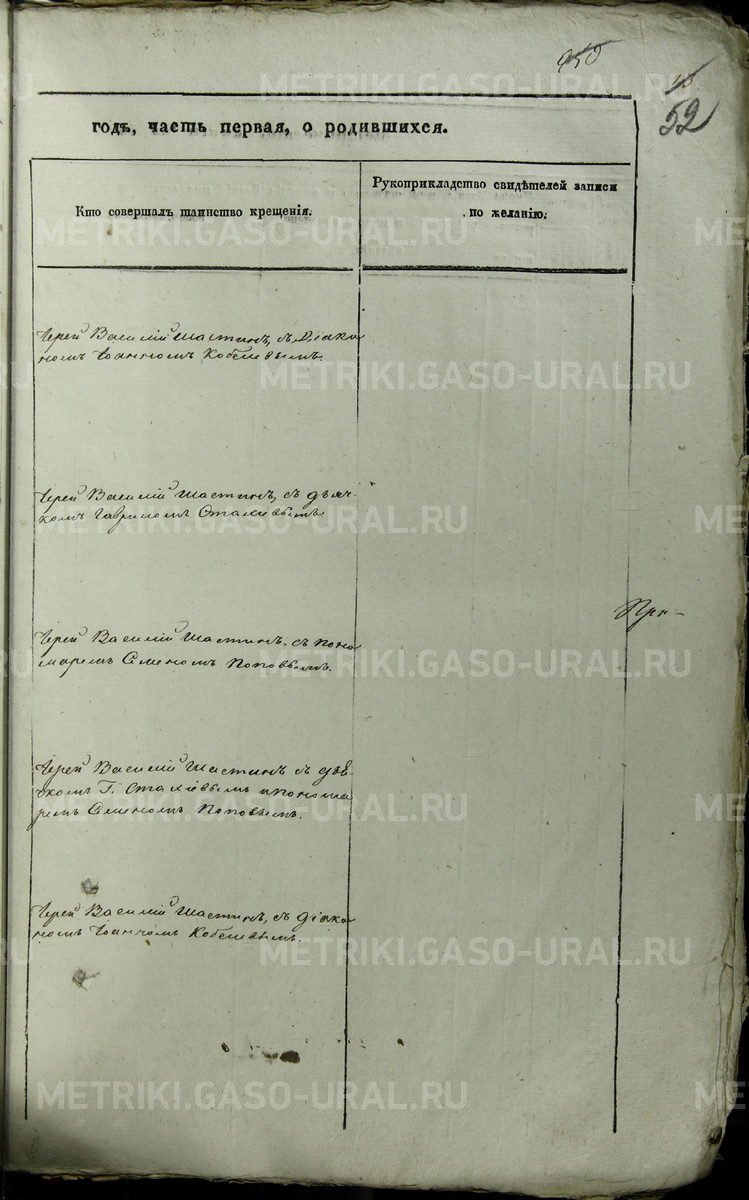 950
52
годъ, часть первая, о родившихся.
Кто совершалъ таинство крещенія.
Рукоприкладство свидѣтелей записи
по желанію.
Іерей Василій Шастинъ, съ Діако
номъ Іоанномъ Кобелевымъ.
Іерей Василій Шастинъ, съ дьяч-
комъ Гавриломъ
При-
Іерей Василій Шастинъ, съ поно
маремъ Симеономъ Поповымъ.
Іерей Василій Шастинъ съ дья-
чкомъ Г. и понома
ремъ Симеономъ Поповымъ.
Іерей Василій Шастинъ, съ діако
номъ Іоанномъ Кобелевымъ.
METRIKI.GASO-URAL.RU